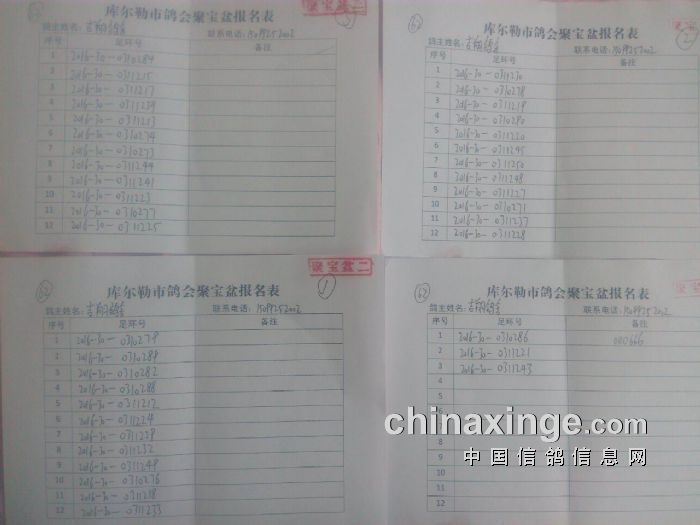 聚宝盆二
库尔勒市鸽会聚宝盆报名表
鸽主姓名：吉翔鸽舍 联系电话：
序号 足环号 备注
1 2016-30-0310284
2 2016-30-0311215
3 2016-30-0311217
4 2016-30-0311239
5 2016-30-0311213
6 2016-30-0310274
7 2016-30-0310273
8 2016-30-0311244
9 2016-30-0311241
10 2016-30-0311223
11 2016-30-0310277
12 2016-30-0311225
62
库尔勒市鸽会聚宝盆报名表
2
鸽主姓名：吉翔鸽舍 联系电话：
序号 足环号 备注
1 2016-30-0311230
2 2016-30-0310278
3 2016-30-0311219
4 2016-30-0310280
5 2016-30-0311220
6 2016-30-0311245
7 2016-30-0311250
8 2016-30-0311248
9 2016-30-0311227
10 2016-30-0310271
11 2016-30-0311237
12 2016-30-0311228
聚宝盆二
62
库尔勒市鸽会聚宝盆报名表
1
鸽主姓名：吉翔鸽舍 联系电话：
序号 足环号 备注
1 2016-30-0310279
2 2016-30-0310289
3 2016-30-0310282
4 2016-30-0310288
5 2016-30-0311212
6 2016-30-0311224
7 2016-30-0311229
8 2016-30-0311232
9 2016-30-0311249
10 2016-30-0310276
11 2016-30-0311218
12 2016-30-0311233
62
库尔勒市鸽会聚宝盆报名表
鸽主姓名：吉翔鸽舍 联系电话：
序号 足环号 备注
1 2016-30-0310286
2 2016-30-0311221
3 2016-30-0311243
4
5
6
7
8
9
10
11
12
chinaxinge.com
中国信鸽信息网